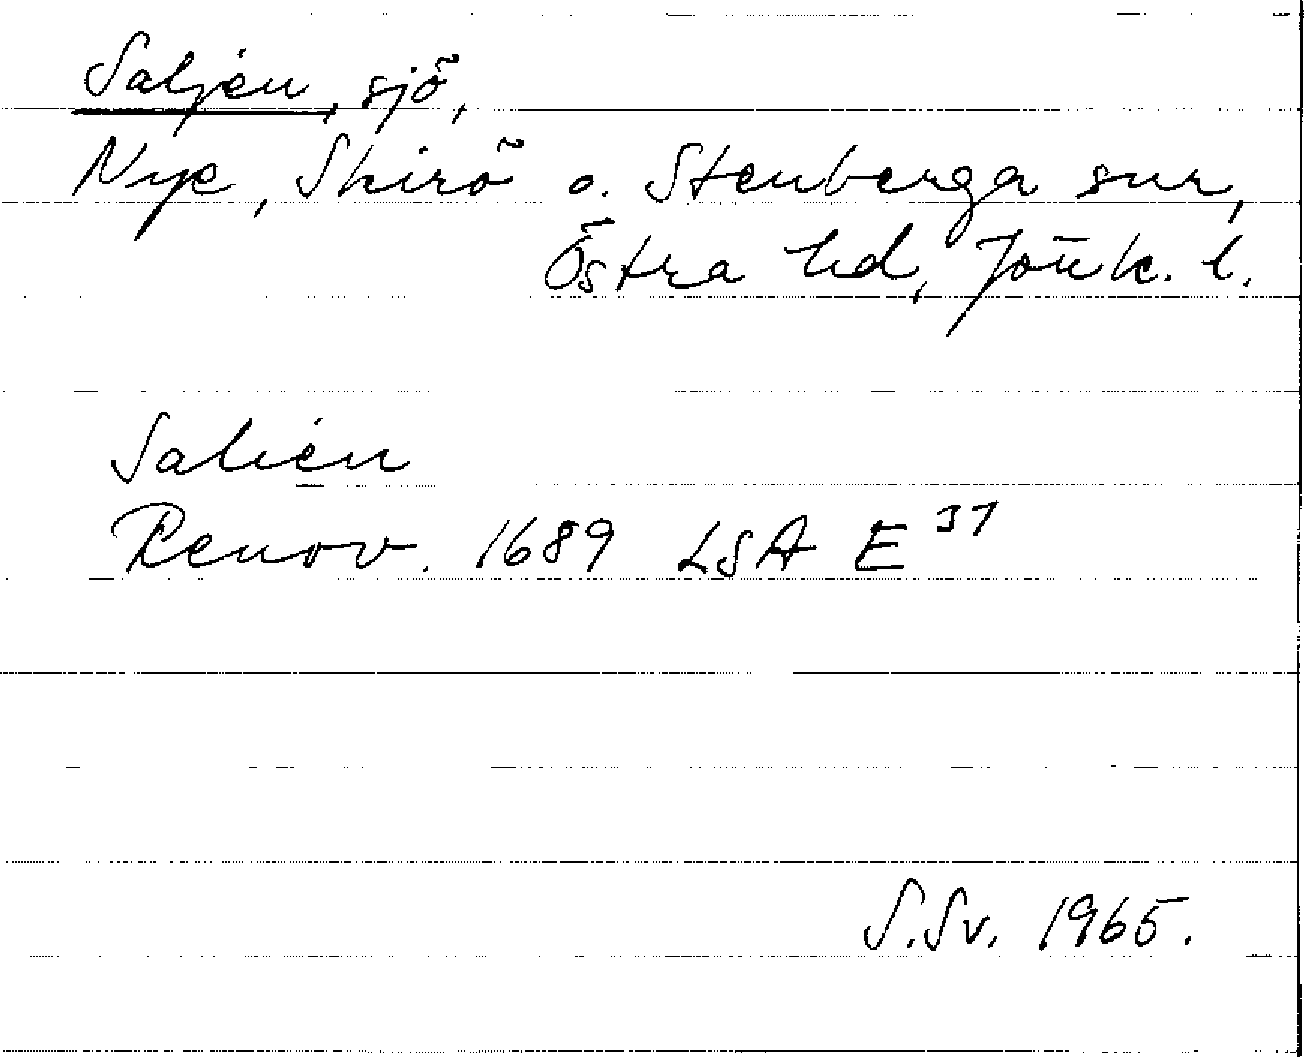 Saljen, sjö,
Nye, Skirö o. Stenberga snr,
Östra hd, Jönk. l.
Salien
Renov. 1689 LSA E 37
S.Sv. 1965.